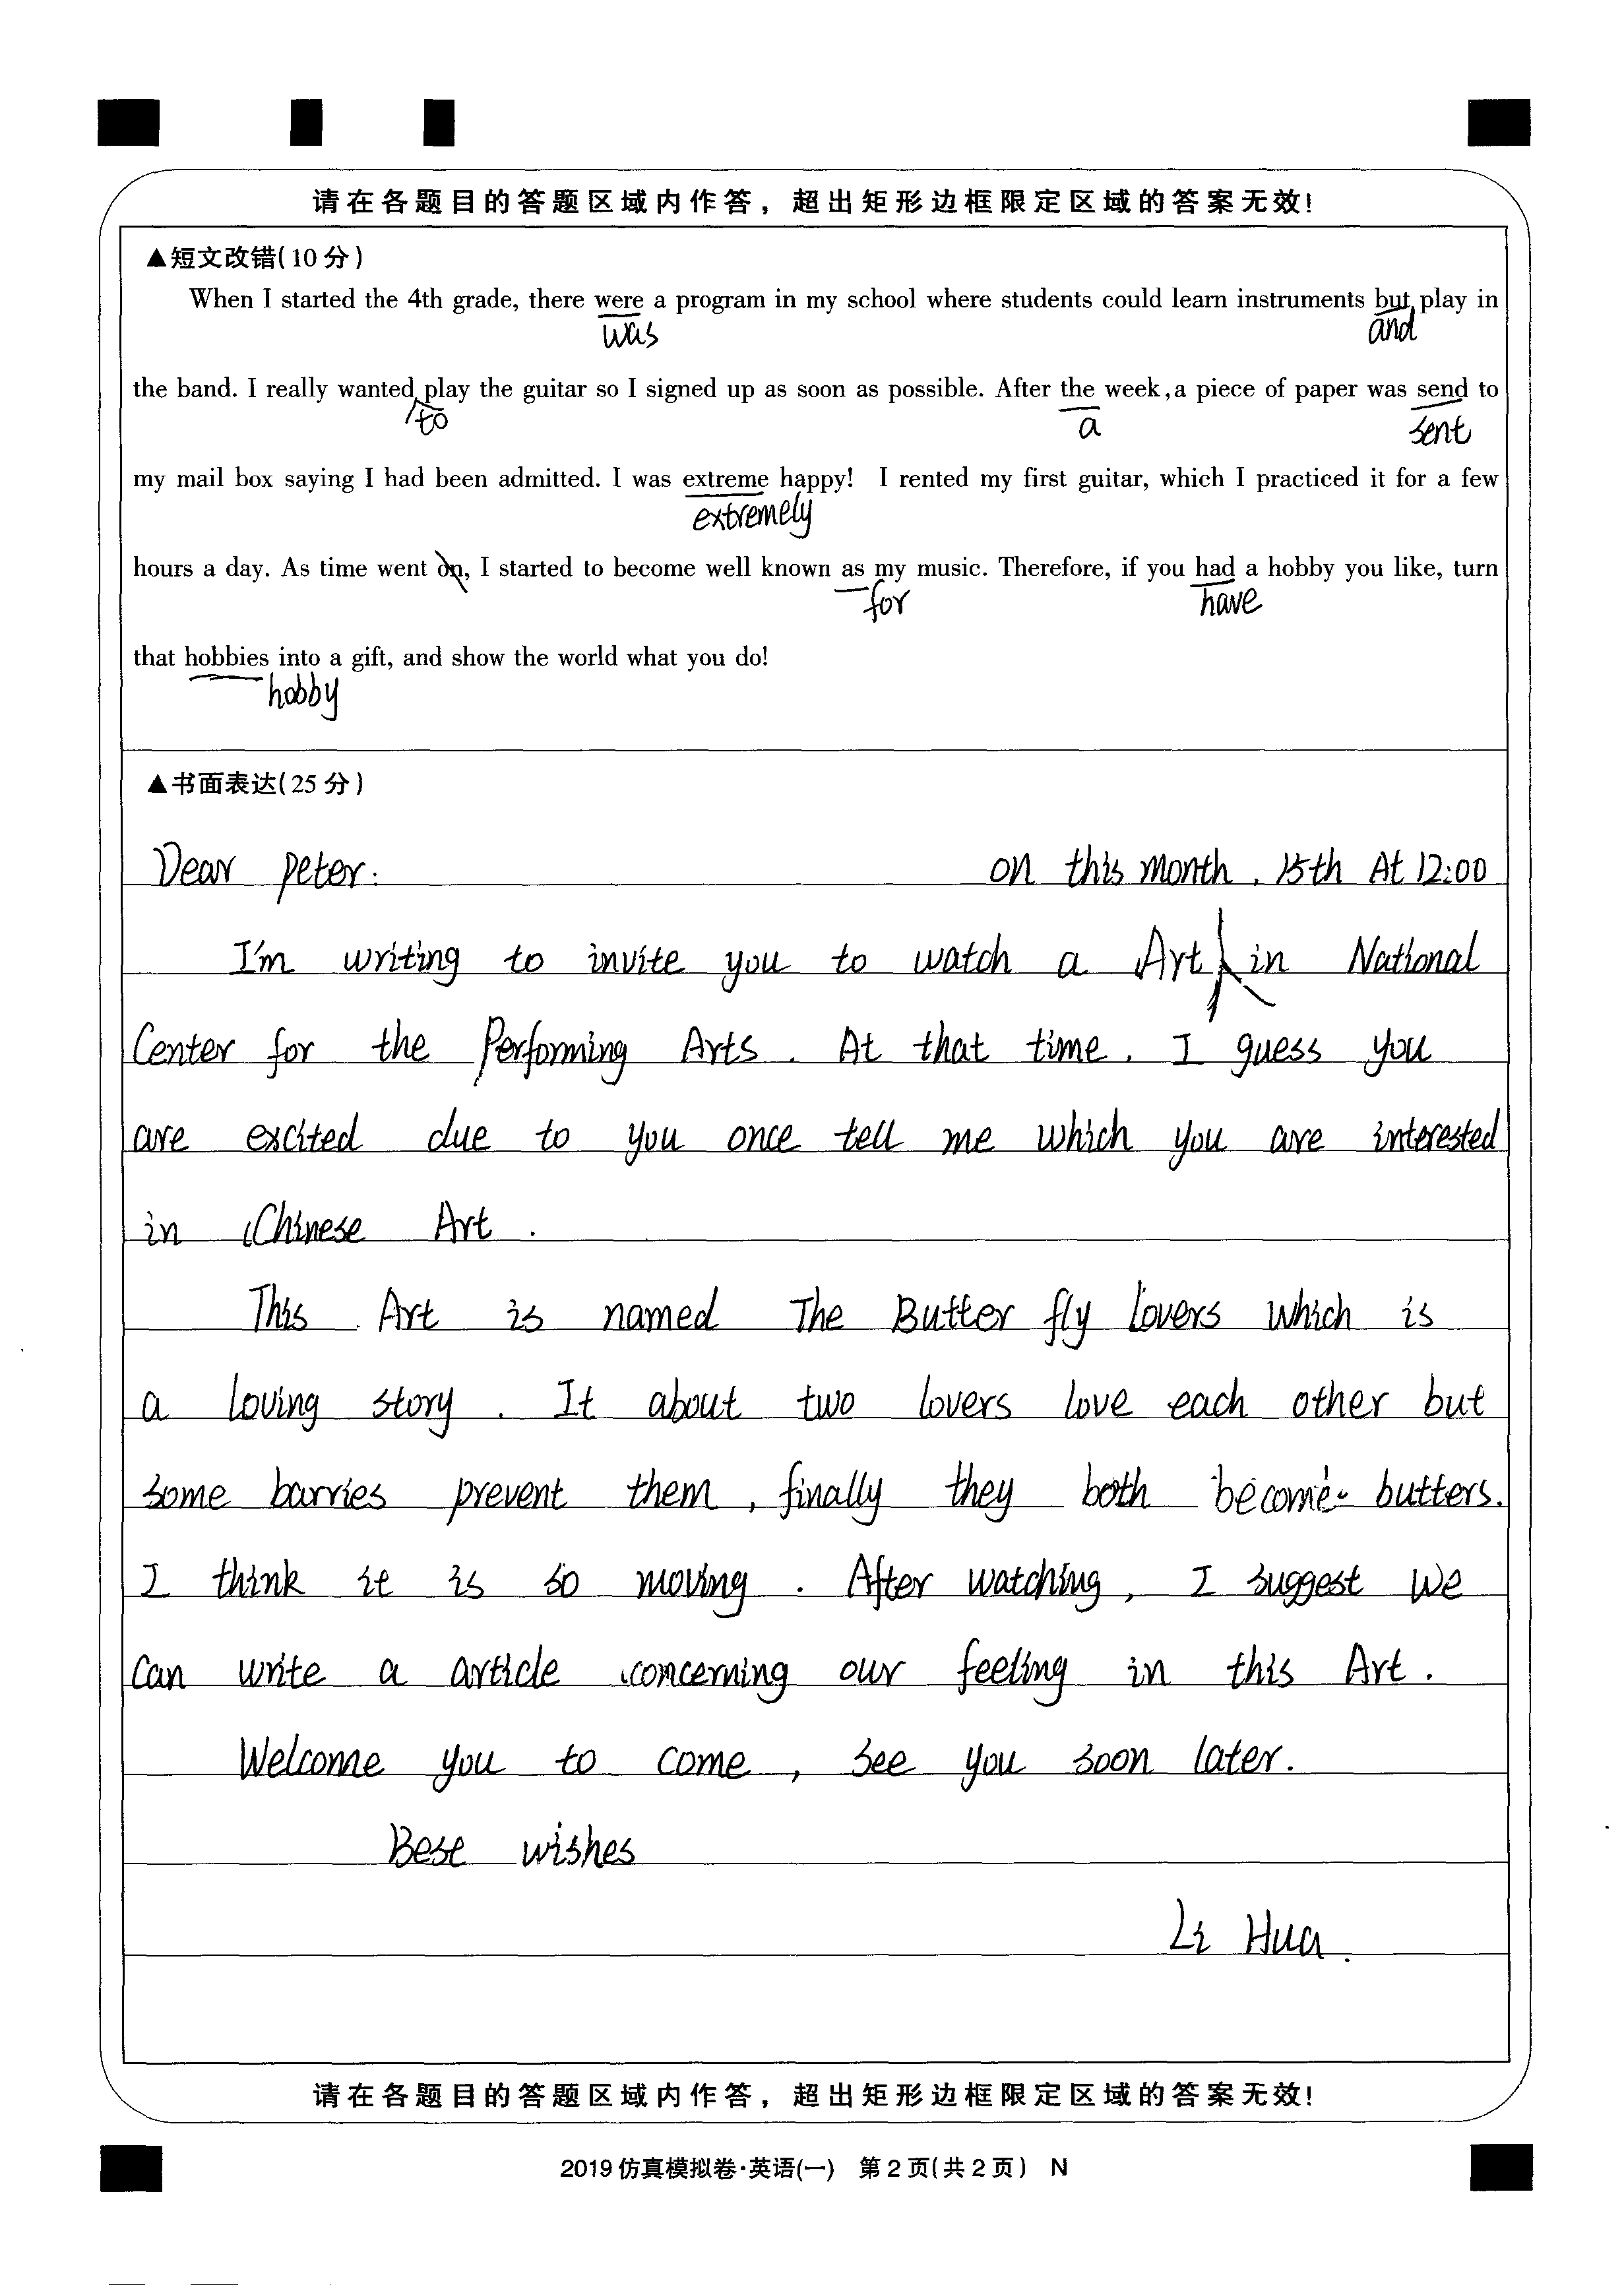 请在各题目的答题区域内作答，超出矩形边框限定区域的答案无效！
▲短文改错(10分)
When I started the 4th grade, there were a program in my school where students could learn instruments but play in
was and
the band. I really wanted play the guitar so I signed up as soon as possible. After the week, a piece of paper was send to
to a sent
my mail box saying I had been admitted. I was extreme happy! I rented my first guitar, which I practiced it for a few
extremely
hours a day. As time went on, I started to become well known as my music. Therefore, if you had a hobby you like, turn
for have
that hobbies into a gift, and show the world what you do!
hobby
▲书面表达(25分)
Dear Peter: on this month, 15th At 12:00
I'm writing to invite you to watch a Art in National
Center for the Performing Arts. At that time, I guess you
are excited due to you once tell me which you are interested
in Chinese Art.
This Art is named The Butter fly Lovers which is
a loving story. It about two lovers love each other but
some barries prevent them, finally they both become butters.
I think it is so moving. After watching, I suggest we
can write a article concerning our feeling in this Art.
Welcome you to come, see you soon later.
Best wishes
Li Hua.
请在各题目的答题区域内作答，超出矩形边框限定区域的答案无效！
2019仿真模拟卷·英语(一) 第2页(共2页) N